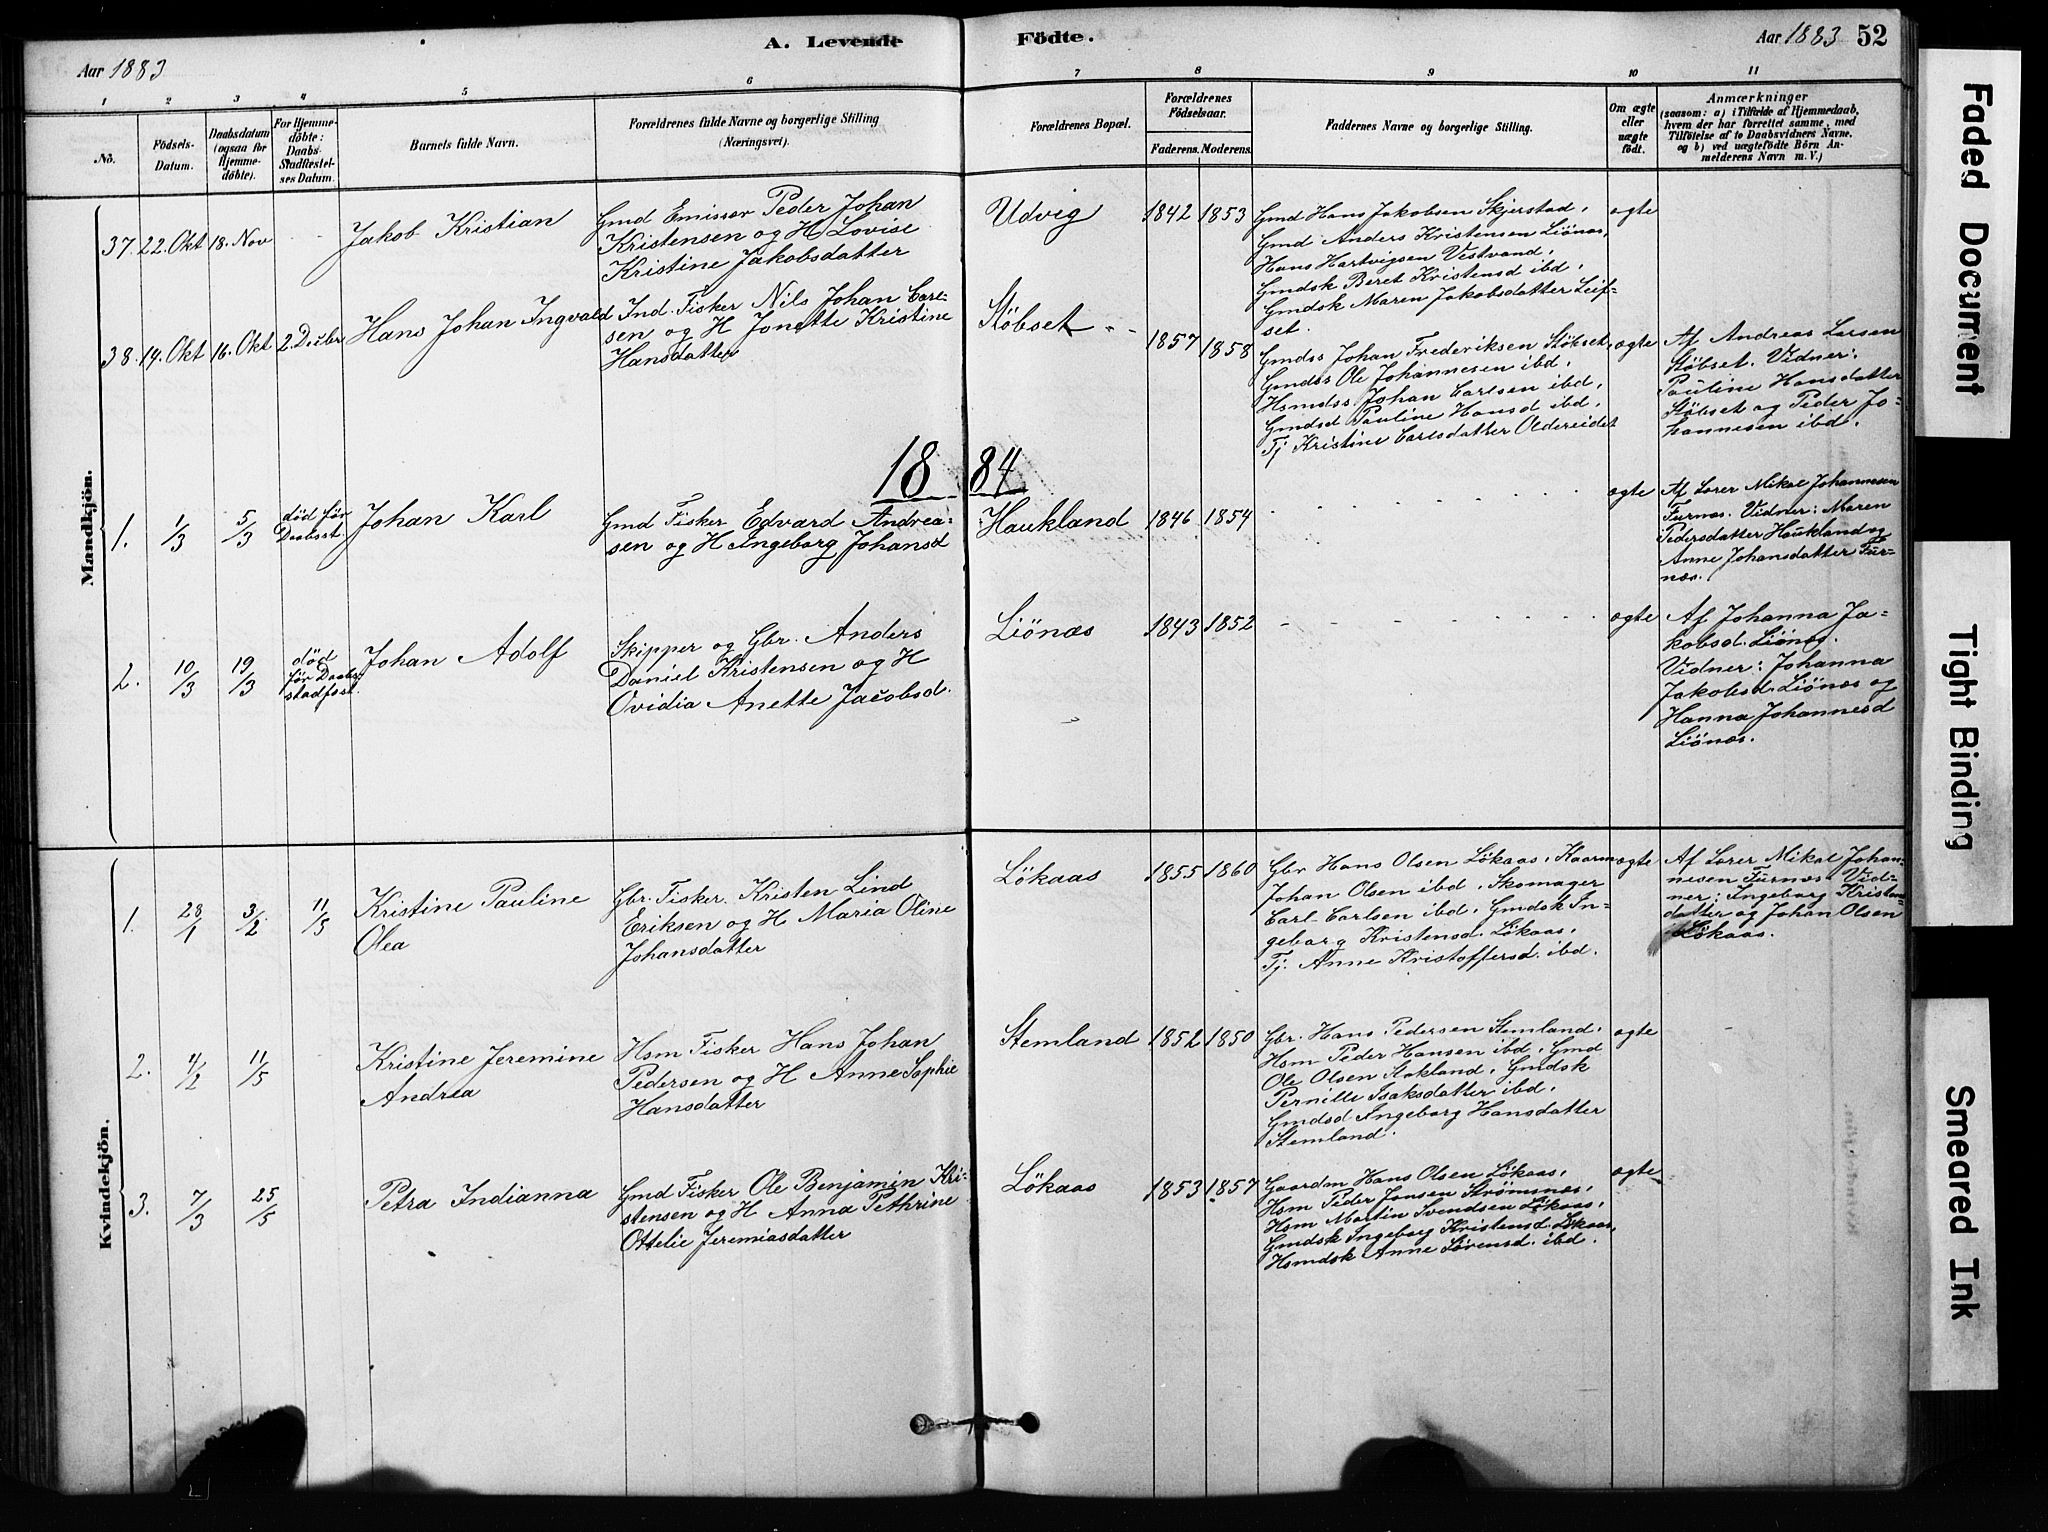 A. Levende Födte.
Aar 1883
Aar 1883 52
1 2 3 4 5 6 7 8 9 10 11
No.
Födsels-
Datum.
Daabsdatum
(ogsaa for
Hjemme-
döbte).
For Hjemme-
döbte:
Daabs-
Stadfæstel-
ses Datum.
Barnets fulde Navn.
Forældrenes fulde Navne og borgerlige Stilling
(Næringsvei).
Forældrenes Bopæl.
Forældrenes
Födselsaar.
Faderens. Moderens.
Faddernes Navne og borgerlige Stilling.
Om ægte
eller
uægte
født.
Anmærkninger
(saasom: a) i Tilfælde af Hjemmedaab,
hvem der har forrettet samme, med
Tilföielse af to Daabsvidners Navne.
og b) ved uægtefödte Börn An-
melderens Navn m. V.)
Mandkjön.
37. 22. Okt 18. Nov
Jakob Kristian
Gmd Emissær Peder Johan
Kristensen og H Lovise
Kristine Jakobsdatter
Udvig
1842 1853
Gmd Hans Jakobsen Skjerstad,
Gmd Anders Kristensen Liönæs,
Hans Hartvigsen Vestvand,
Gmdsk Beret Kristensd ibd,
Gmdsk Maren Jakobsdatter Leif-
set.
ægte
38. 14. Okt 16. Okt 2. Decbr
Hans Johan Ingvald
Ind. Fisker Nils Johan Carl-
sen og H Jonette Kristine
Hansdatter
Stöbset
1857 1858
Gmdss Johan Frederiksen Stöbset,
Gmdss Ole Johannesen ibd,
Hsmdss Johan Carlsen ibd,
Gmdsd Pauline Hansd ibd,
Tj Kristine Carlsdatter Oldereidet
ægte
Af Andreas Larsen
Stöbset. Vidner:
Pauline Hansdatter
Stöbset og Peder Jo-
hannesen ibd.
1884
1. 1/3 5/3
død før
Daabsst.
Johan Karl
Gmd Fisker Edvard Andrea-
sen og H Ingeborg Johansd
Haukland
1846 1854
ægte
Af Lærer Mikal Johannesen
Furnæs. Vidner: Maren
Pedersdatter Haukland og
Anne Johansdatter Fur-
næs.
2. 10/3 19/3
død
før Daabs-
stadfæst.
Johan Adolf
Skipper og Gbr. Anders
Daniel Kristensen og H
Ovidia Anette Jacobsd.
Liönæs
1843 1852
ægte
Af Johanna Ja-
kobsd. Liönæs.
Vidner: Johanna
Jakobsd. Liönæs og
Hanna Johannesd
Liönæs.
Kvindekjön.
1. 28/1 3/2 11/5
Kristine Pauline
Olea
Gbr. Fisker. Kristen Lind
Eriksen og H Maria Oline
Johansdatter
Lökaas
1855 1860
Gbr Hans Olsen Lökaas, Kaarm
Johan Olsen ibd, Skomager
Carl Carlsen ibd, Gmdsk In-
geborg Kristensd. Lökaas,
Tj. Anne Kristoffersd. ibd.
ægte
Af Lærer Mikal Johan-
nesen Furnæs. Vid-
ner: Ingeborg Kristens-
datter og Johan Olsen
Lökaas.
2. 4/2 11/5
Kristine Jeremine
Andrea
Hsm Fisker Hans Johan
Pedersen og H Anne Sophie
Hansdatter
Stemland
1852 1850
Gbr. Hans Pedersen Stemland,
Hsm Peder Hansen ibd, Gmd
Ole Olsen Stokland, Gmdsk
Pernille Isaksdatter ibd,
Gmdsd Ingeborg Hansdatter
Stemland.
ægte
3. 7/3 25/5
Petra Indianna
Gmd Fisker Ole Benjamin Kri-
stensen og H Anna Pethrine
Ottelie Jeremiasdatter
Lökaas
1853 1857
Gaardm Hans Olsen Lökaas,
Hsm Peder Jonsen Strömsnæs,
Hsm Martin Svendsen Lökaas,
Gmdsk Ingeborg Kristensd. Lökaas,
Hsmdsk Anne Sörensd. ibd.
ægte
Faded Document
Tight Binding
Smeared Ink